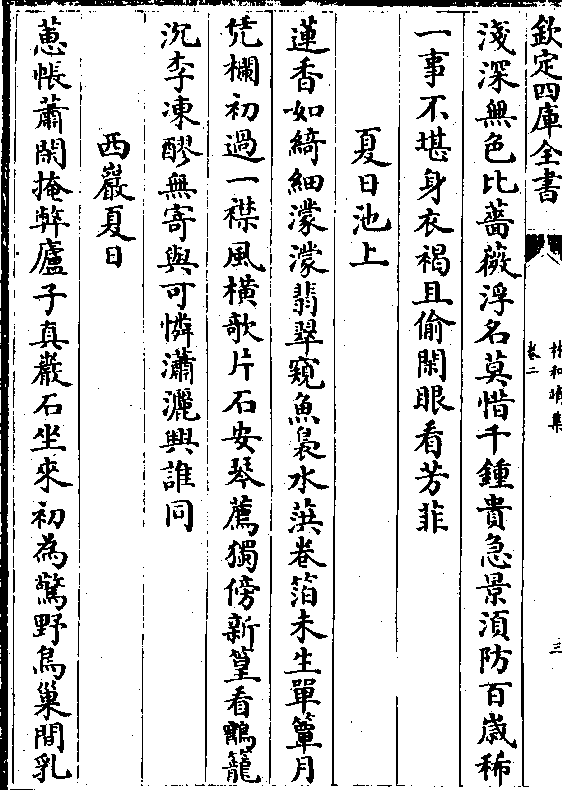 欽定四庫全書
林和靖集
卷二
三
淺深無色比薔薇浮名莫惜千鍾貴急景湏防百歲稀
一事不堪身衣褐且偷閑眼看芳菲
夏日池上
蓮香如綺細濛濛翡翠窺魚裊水葓卷箔未生單簟月
凭欄初過一襟風橫歌片石安琴薦獨傍新篁看鶴籠
沉李凍醪無寄與可憐瀟灑興誰同
西巖夏日
蕙帳蕭閑掩弊廬子真巖石坐來初為驚野鳥巢間乳